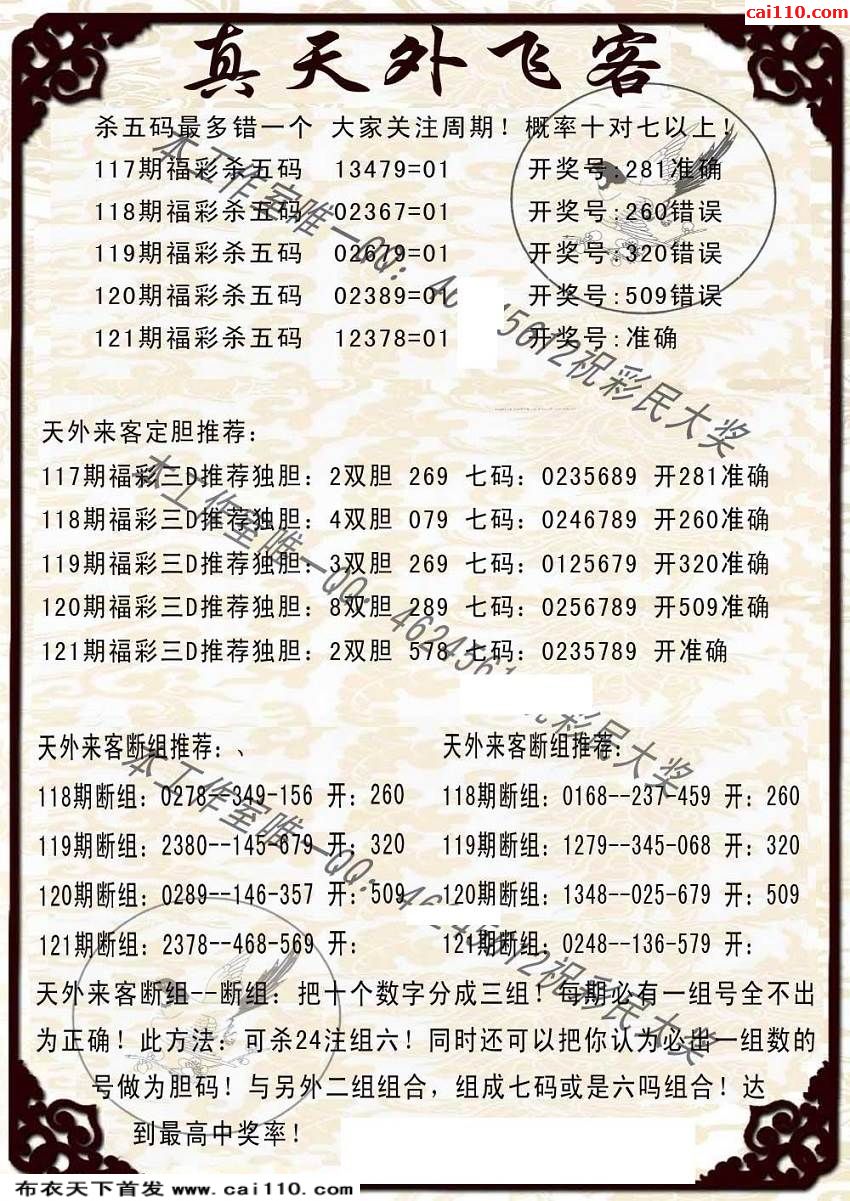 cai110.com
真天外飞客
杀五码最多错一个 大家关注周期！概率十对七以上！
117期福彩杀五码 13479=01 开奖号:281准确
118期福彩杀五码 02367=01 开奖号:260错误
119期福彩杀五码 02679=01 开奖号:320错误
120期福彩杀五码 02389=01 开奖号:509错误
121期福彩杀五码 12378=01 开奖号:准确
天外来客定胆推荐：
117期福彩三D推荐独胆：2双胆 269 七码：0235689 开281准确
118期福彩三D推荐独胆：4双胆 079 七码：0246789 开260准确
119期福彩三D推荐独胆：3双胆 269 七码：0125679 开320准确
120期福彩三D推荐独胆：8双胆 289 七码：0256789 开509准确
121期福彩三D推荐独胆：2双胆 578 七码：0235789 开准确
天外来客断组推荐：、
118期断组：0278--349-156 开：260
119期断组：2380--145-679 开：320
120期断组：0289--146-357 开：509
121期断组：2378--468-569 开：
天外来客断组推荐：
118期断组：0168--237-459 开：260
119期断组：1279--345-068 开：320
120期断组：1348--025-679 开：509
121期断组：0248--136-579 开：
天外来客断组--断组：把十个数字分成三组！每期必有一组号全不出
为正确！此方法：可杀24注组六！同时还可以把你认为必出一组数的
号做为胆码！与另外二组组合，组成七码或是六吗组合！达
到最高中奖率！
本工作室唯一QQ：
祝彩民大奖
本工作室唯一QQ：
彩民大奖
本工作室唯一QQ：
祝彩民大奖
布衣天下首发 www.cai110.com